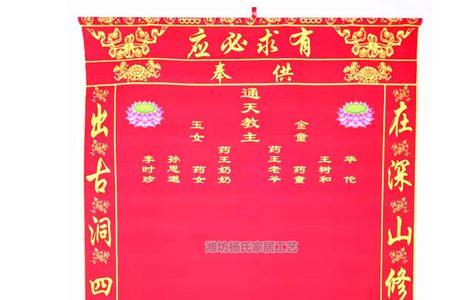 有求必应
供奉
在深山修
华佗
王树和
药童
金童
药王老爷
通天教主
药王奶奶
玉女
药女
孙思邈
李时珍
出古洞四
潍坊杨氏家居工艺